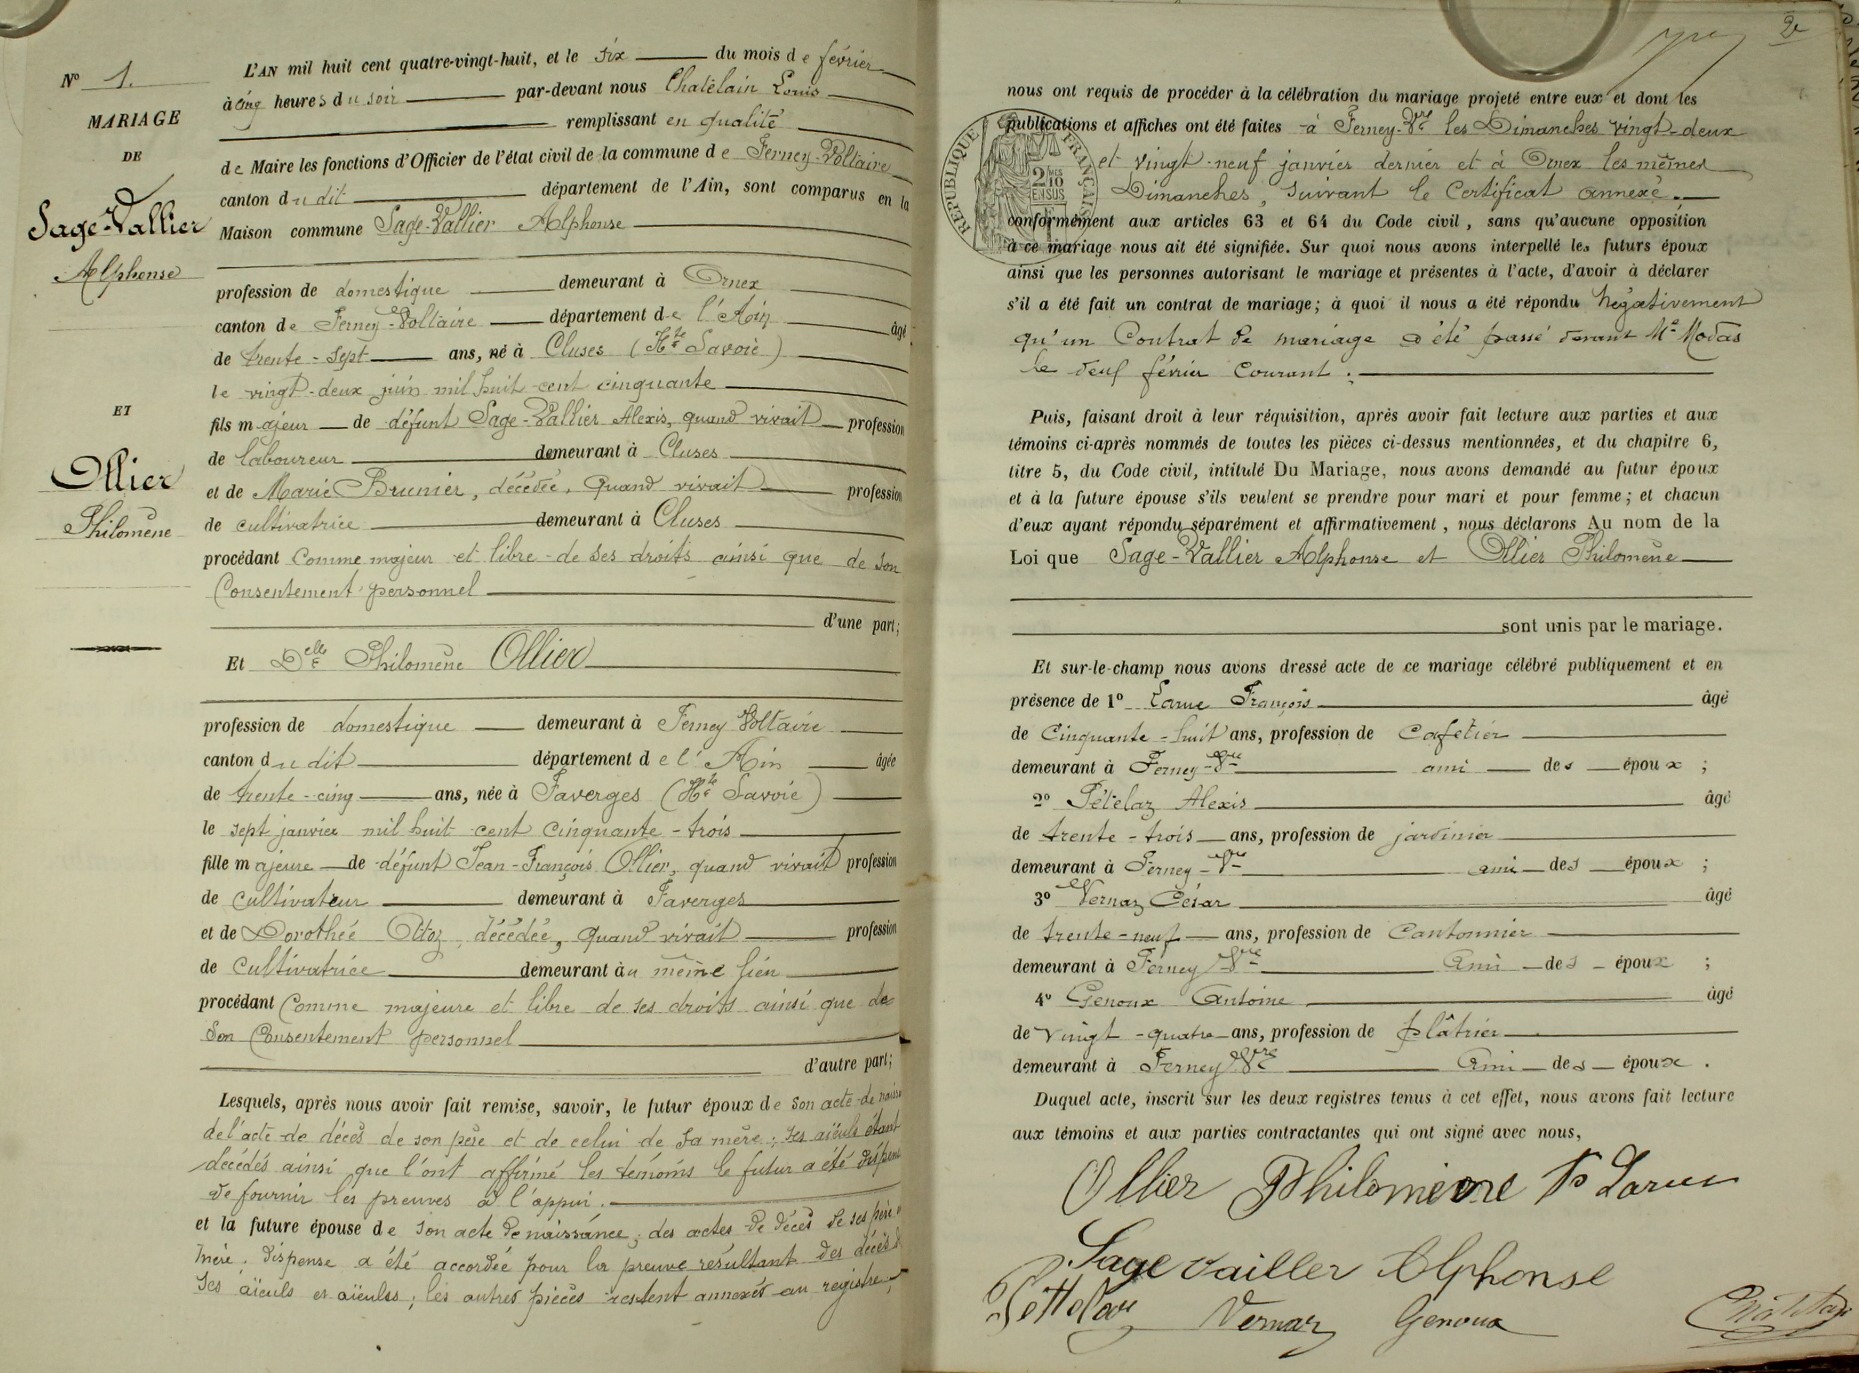 N° 1.
MARIAGE
DE
Sage-Vallier
Alphonse
ET
Ollier
Philomène
L'AN mil huit cent quatre-vingt-huit, et le six du mois de février
à cinq heures du soir par-devant nous Chatelain Louis
remplissant en qualité
de Maire les fonctions d'Officier de l'état civil de la commune de Ferney-Voltaire
canton du dit département de l'Ain, sont comparus en la
Maison commune Sage-Vallier Alphonse
profession de domestique demeurant à Ornex
canton de Ferney-Voltaire département de l'Ain âgé
de trente-sept ans, né à Cluses (Hte Savoie)
le vingt-deux juin mil huit cent cinquante
fils majeur de défunt Sage-Vallier Alexis, quand vivait profession
de laboureur demeurant à Cluses
et de Marie Brunier, décédée, quand vivait profession
de cultivatrice demeurant à Cluses
procédant comme majeur et libre de ses droits ainsi que de son
Consentement personnel
d'une part;
Et Delle Philomène Ollier
profession de domestique demeurant à Ferney Voltaire
canton du dit département de l'Ain âgée
de trente-cinq ans, née à Faverges (Hte Savoie)
le sept janvier mil huit cent cinquante-trois
fille majeure de défunt Jean-François Ollier, quand vivait profession
de cultivateur demeurant à Faverges
et de Dorothée décédée, quand vivait profession
de cultivatrice demeurant au même lieu
procédant comme majeure et libre de ses droits ainsi que de
son Consentement personnel
d'autre part;
Lesquels, après nous avoir fait remise, savoir, le futur époux de son acte de
de l'acte de décès de son père et de celui de sa mère; ses aïeuls étant
décédés ainsi que l'ont affirmé les témoins le futur a été
de fournir les preuves à l'appui.
et la future épouse de son acte de naissance, des actes de décès de ses père
mère; dispense a été accordée pour la preuve résultant des décès
ses aïeuls et aïeules; les autres pièces restent annexés au registre,
2
nous ont requis de procéder à la célébration du mariage projeté entre eux et dont les
publications et affiches ont été faites à Ferney-Vre les Dimanches vingt-deux
et vingt-neuf janvier dernier et à Ornex les mêmes
Dimanches, suivant le certificat annexé;
conformément aux articles 63 et 64 du Code civil, sans qu'aucune opposition
à ce mariage nous ait été signifiée. Sur quoi nous avons interpellé les futurs époux
ainsi que les personnes autorisant le mariage et présentes à l'acte, d'avoir à déclarer
s'il a été fait un contrat de mariage; à quoi il nous a été répondu négativement
qu'un Contrat de mariage a été passé devant Me Modas
le deuf février courant;
Puis, faisant droit à leur réquisition, après avoir fait lecture aux parties et aux
témoins ci-après nommés de toutes les pièces ci-dessus mentionnées, et du chapitre 6,
titre 5, du Code civil, intitulé Du Mariage, nous avons demandé au futur époux
et à la future épouse s'ils veulent se prendre pour mari et pour femme; et chacun
d'eux ayant répondu séparément et affirmativement, nous déclarons Au nom de la
Loi que Sage-Vallier Alphonse et Ollier Philomène
sont unis par le mariage.
Et sur-le-champ nous avons dressé acte de ce mariage célébré publiquement et en
présence de 1° Larue François âgé
de cinquante-huit ans, profession de cafetier
demeurant à Ferney-Vre ami des époux;
2° Pételaz Alexis âgé
de trente-trois ans, profession de jardinier
demeurant à Ferney-Vre ami des époux;
3° Vernaz César âgé
de trente-neuf ans, profession de Cantonnier
demeurant à Ferney Vre ami des époux;
4° Genoux Antoine âgé
de vingt-quatre ans, profession de plâtrier
demeurant à Ferney Vre ami des époux.
Duquel acte, inscrit sur les deux registres tenus à cet effet, nous avons fait lecture
aux témoins et aux parties contractantes qui ont signé avec nous,
Ollier Philomene Larue
Sage vailler Alphonse
Vernaz Genoux
RÉPUBLIQUE FRANÇAISE
2/10
EN SUS